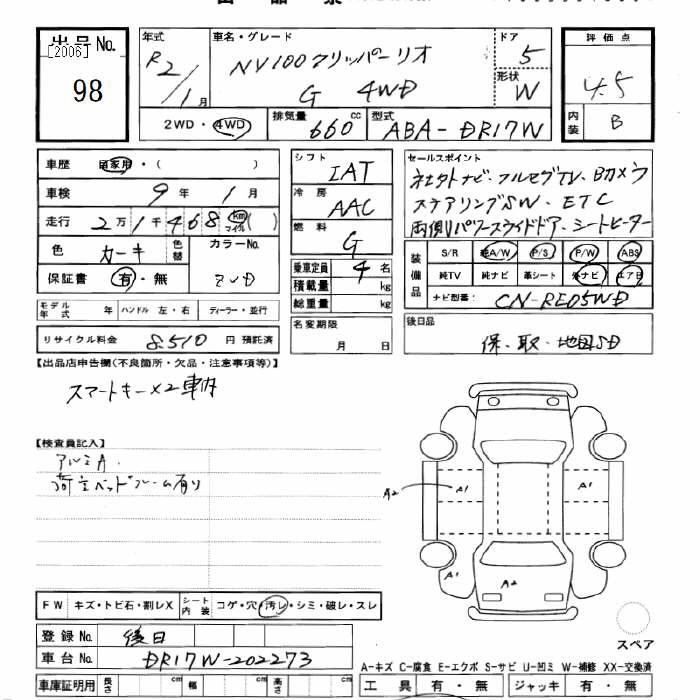 出品No.
[2006]
98
年式
R2/1月
車名・グレード
NV100クリッパーリオ
G 4WD
ドア
5
形状
W
評価点
4.5
内装
B
2WD・4WD
排気量
660 cc
型式
ABA-DR17W
車歴 自家用・( )
車検 9年 1月
走行 2万1千468 km マイル ( )
色 カーキ 色替
カラーNo. ZVD
保証書 有・無
モデル年式 年 ハンドル 左・右 ディーラー・並行
リサイクル料金 8,510 円 預託済
シフト
IAT
冷房
AAC
燃料
G
乗車定員 4 名
積載量 kg
総重量 kg
名変期限
月 日
セールスポイント
社外ナビ・フルセグTV、Bカメラ
ステアリングSW、ETC
両側パワースライドドア、シートヒーター
装備品
S/R 純A/W P/S P/W ABS
純TV 純ナビ 革シート 外ナビ エアB
ナビ型番: CN-RE05WD
後日品
保、取、地図SD
【出品店申告欄(不良箇所・欠品・注意事項等)】
スマートキー×2車内
【検査員記入】
アルミA.
荷室ベッドフレーム有り
A2
A1
A1
A1
A2
スペア
FW キズ・トビ石・割レX
シート内装 コゲ・穴・汚レ・シミ・破レ・スレ
登録No. 後日
車台No. DR17W-202273
車庫証明用 長さ cm 幅 cm 高さ cm
A-キズ C-腐食 E-エクボ S-サビ U-凹ミ W-補修 XX-交換済
工具 有・無 ジャッキ 有・無